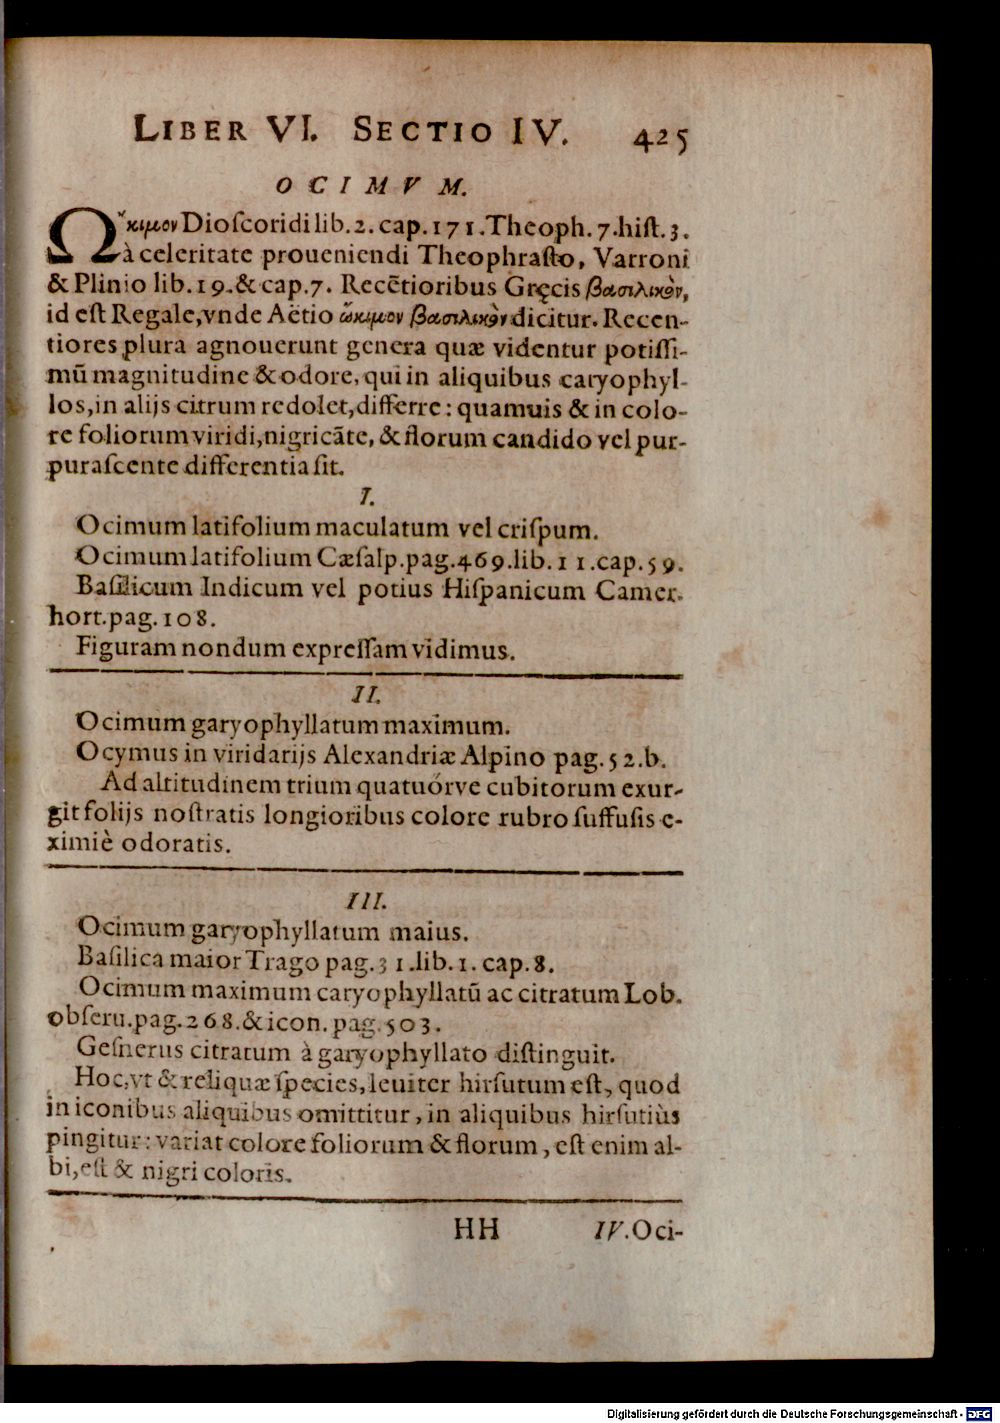 LIBER VI. SECTIO IV. 425
OCIMVM.
Ὤκιμον Dioſcoridi lib. 2. cap. 171. Theoph. 7. hiſt. 3.
à celeritate proueniendi Theophraſto, Varroni
& Plinio lib. 19. & cap. 7. Recẽtioribus Gręcis βασιλικὸν,
id eſt Regale, vnde Aëtio ὤκιμον βασιλικὸν dicitur. Recen-
tiores plura agnouerunt genera quæ videntur potiſſi-
mũ magnitudine & odore, qui in aliquibus caryophyl-
los, in alijs citrum redolet, differre: quamuis & in colo-
re foliorum viridi, nigricãte, & florum candido vel pur-
puraſcente differentia ſit.
I.
Ocimum latifolium maculatum vel criſpum.
Ocimum latifolium Cæſalp. pag. 469. lib. 11. cap. 59.
Baſilicum Indicum vel potius Hiſpanicum Camer.
hort. pag. 108.
Figuram nondum expreſſam vidimus.
II.
Ocimum garyophyllatum maximum.
Ocymus in viridarijs Alexandriæ Alpino pag. 52. b.
Ad altitudinem trium quatuórve cubitorum exur-
git folijs noſtratis longioribus colore rubro ſuffuſis e-
ximiè odoratis.
III.
Ocimum garyophyllatum maius.
Baſilica maior Trago pag. 31. lib. 1. cap. 8.
Ocimum maximum caryophyllatũ ac citratum Lob.
obſeru. pag. 268. & icon. pag. 503.
Geſnerus citratum à garyophyllato diſtinguit.
Hoc, vt & reliquæ ſpecies, leuiter hirſutum eſt, quod
in iconibus aliquibus omittitur, in aliquibus hirſutiùs
pingitur: variat colore foliorum & florum, eſt enim al-
bi, eſt & nigri coloris.
HH IV. Oci-
Digitalisierung gefördert durch die Deutsche Forschungsgemeinschaft - DFG